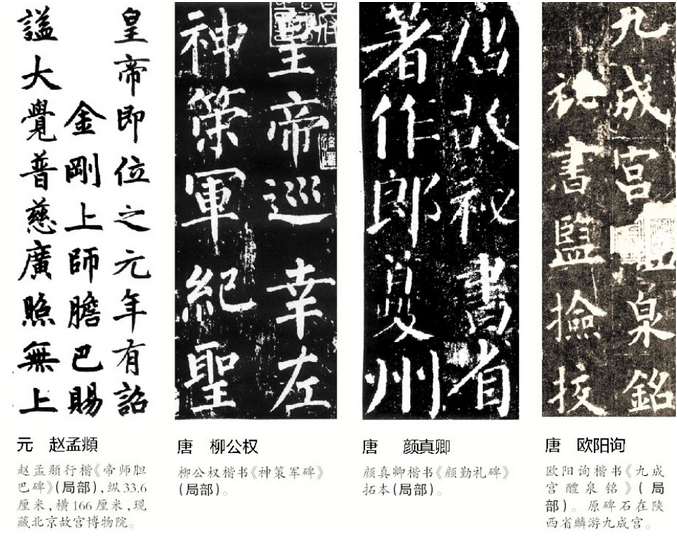 皇帝即位之元年有詔
金剛上師膽巴賜
謚大覺普慈廣照無上
皇帝巡幸左
神策軍紀聖
唐故祕書省
著作郎夔州
九成宮
泉銘
祕書監撿挍
元 赵孟頫
赵孟頫行楷《帝师胆
巴碑》(局部),纵33.6
厘米,横166厘米,现
藏北京故宫博物院。
唐 柳公权
柳公权楷书《神策军碑》
(局部)。
唐 颜真卿
颜真卿楷书《颜勤礼碑》
拓本(局部)。
唐 欧阳询
欧阳询楷书《九成
宫醴泉铭》(局
部)。原碑石在陕
西省麟游九成宫。